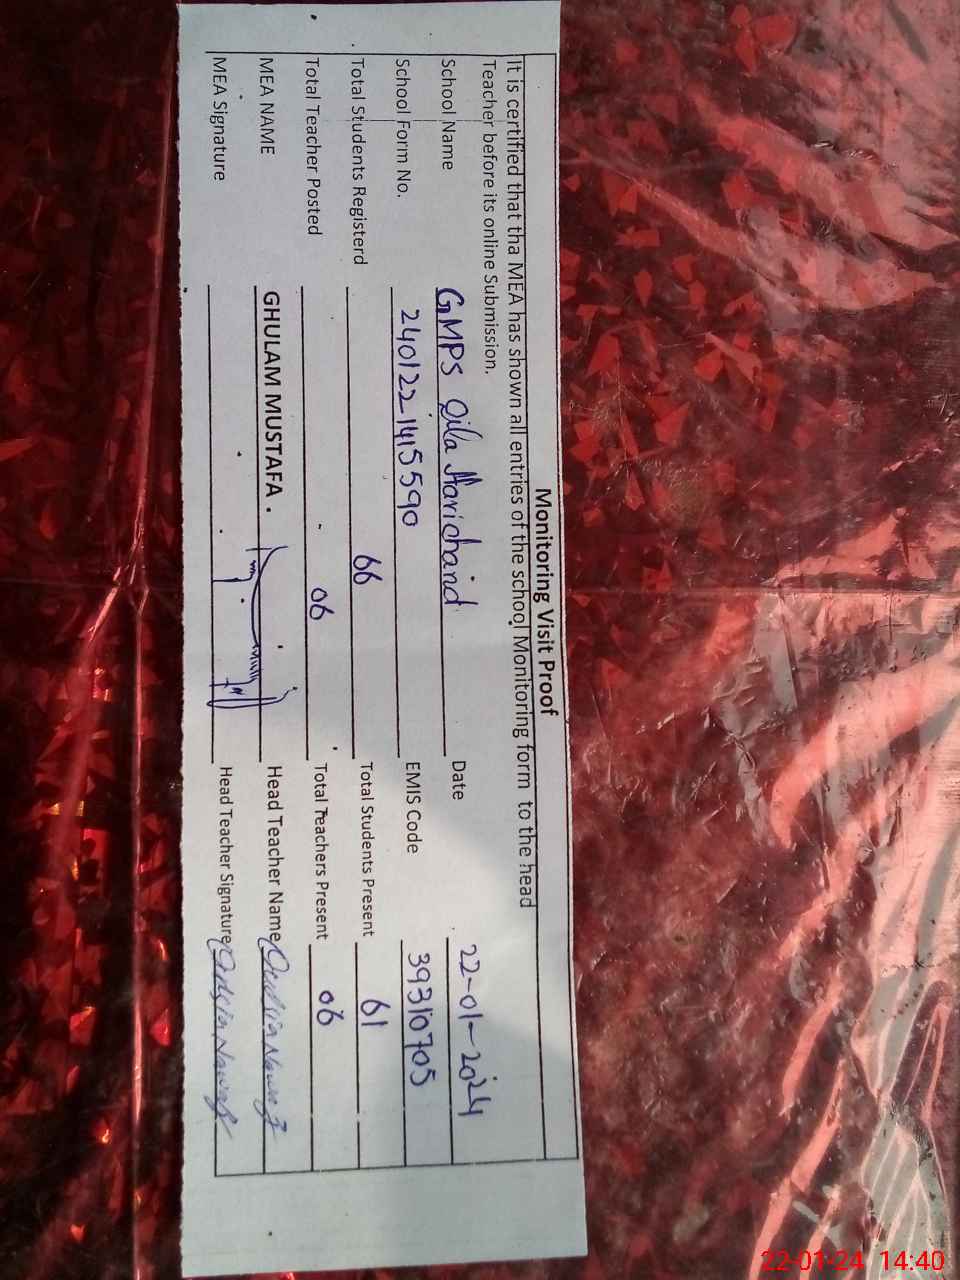 Monitoring Visit Proof
It is certified that tha MEA has shown all entries of the school Monitoring form to the head
Teacher before its online Submission.
School Name GMPS Qila Harichand Date 22-01-2024
School Form No. 2401221415590 EMIS Code 39310705
Total Students Registerd 66 Total Students Present 61
Total Teacher Posted 06 Total Teachers Present 06
MEA NAME GHULAM MUSTAFA. Head Teacher Name
MEA Signature Head Teacher Signature
22-01-24 14:40